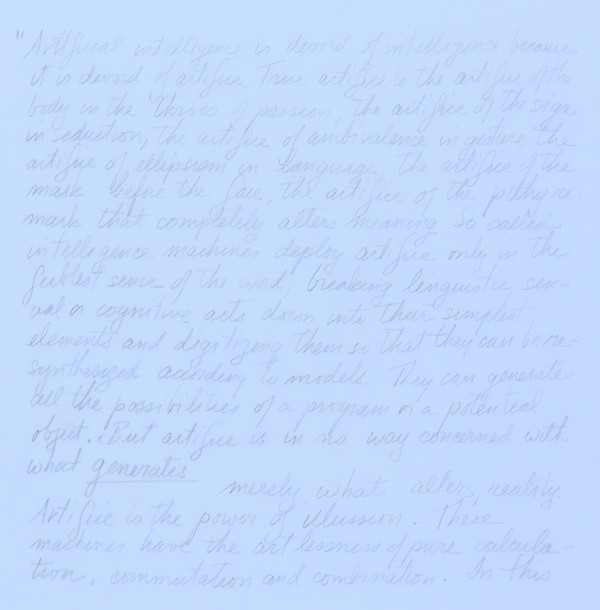 "Artificial intelligence is devoid of intelligence because
it is devoid of artifice. True artifice is the artifice of the
body in the throes of passion, the artifice of the sign
in seduction, the artifice of ambivalence in gesture, the
artifice of ellipsism in language the artifice of the
mask before the face, the artifice of the pithy re-
mark that completely alters meaning So called
intelligence machines deploy artifice only in the
feeblest sense of the word, breaking linguistic, sex-
ual or cognitive acts down into their simplest
elements and digitizing them so that they can be re-
synthesized according to models. They can generate
all the possibilities of a program or a potential
object. But artifice is in no way concerned with
what generates
merely what alters, reality.
Artifice is the power of illussion. These
machines have the artlessness of pure calcula-
tion, commutation and combination. In this